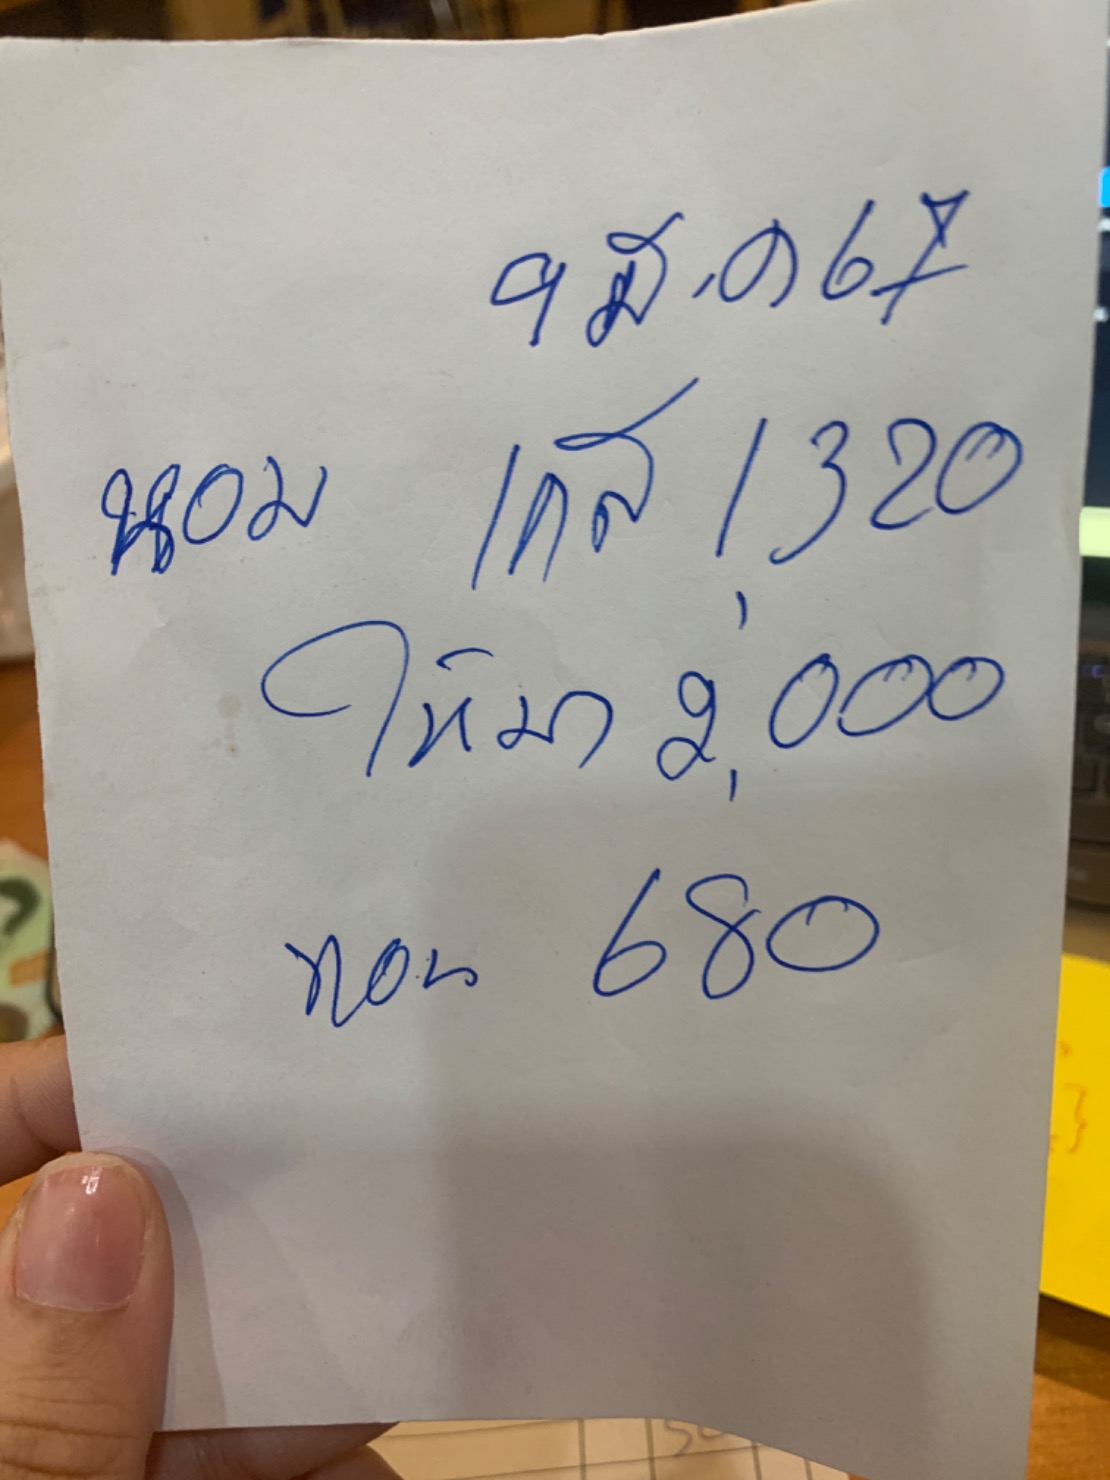 9 มี.ค 67
หอม เคลี 1,320
ให้มา 2,000
ทอน 680